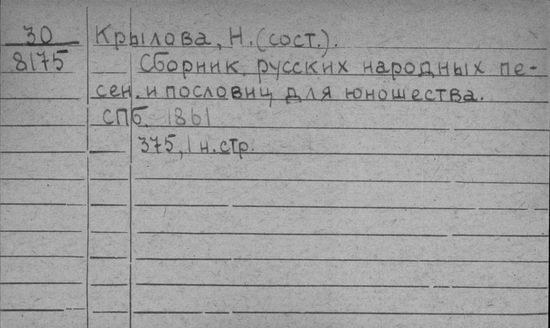 30 Крылова, Н. (сост.).
8175 Сборник русских народных пе-
сен и пословиц для юношества.
СПб. 1861
375, 1 н. стр.